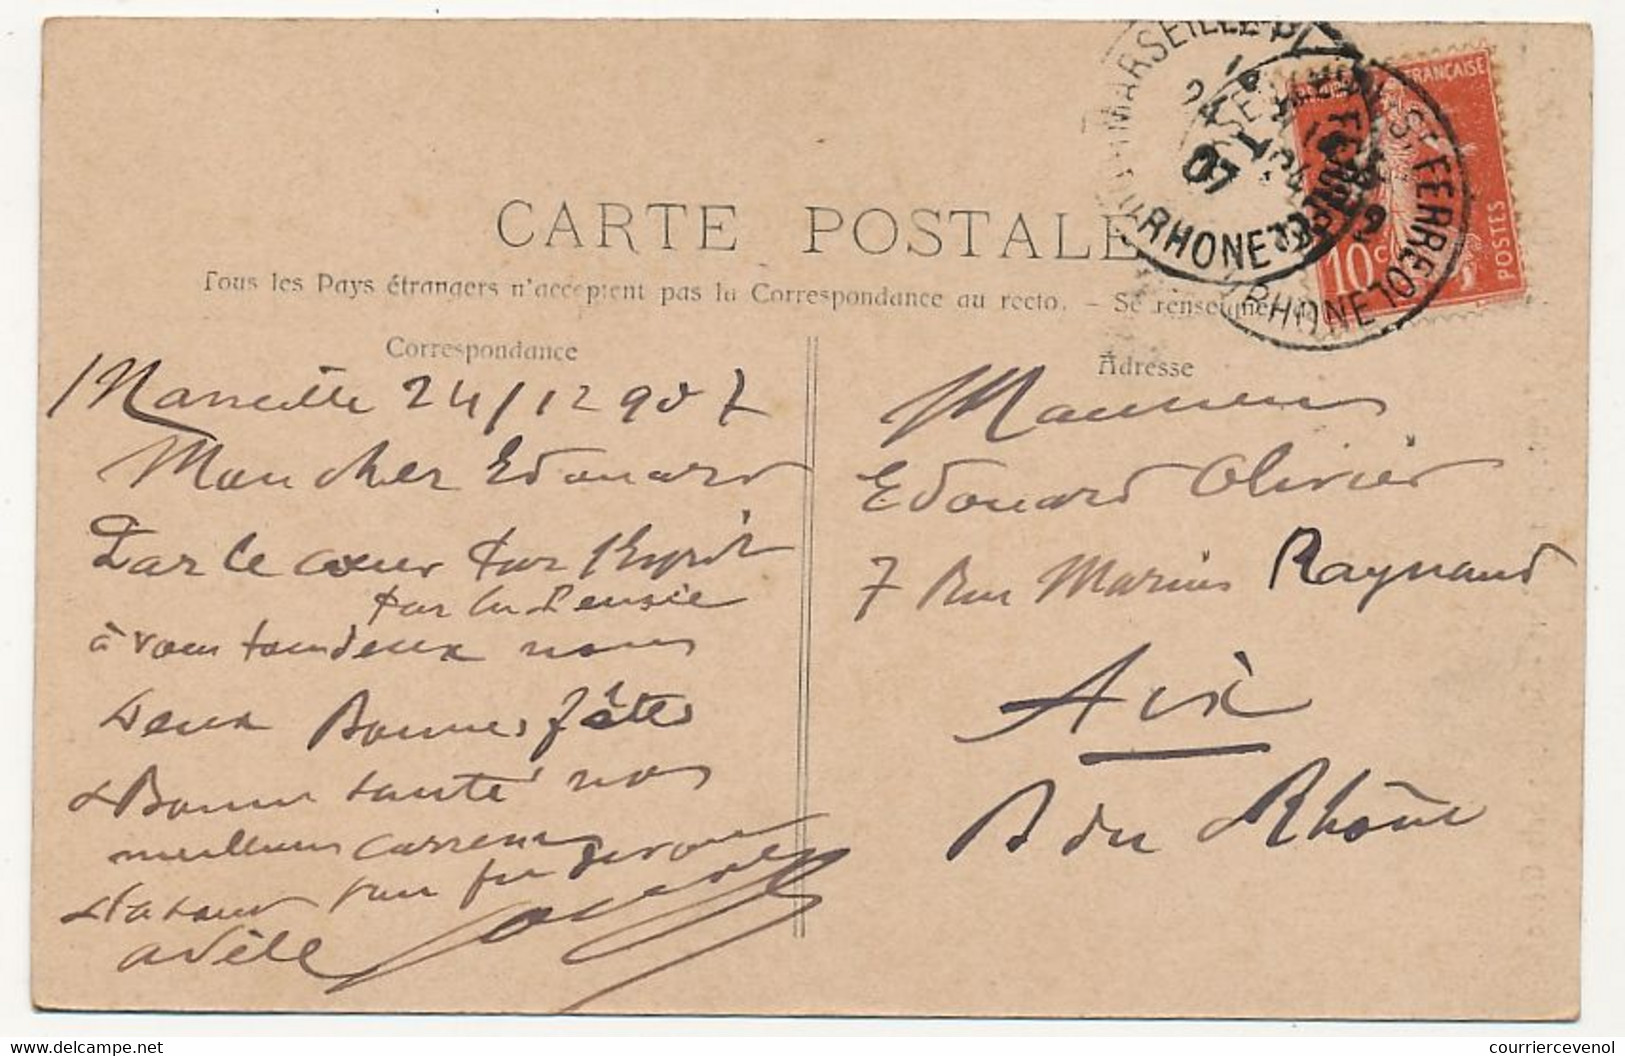 CARTE POSTALE
Tous les Pays étrangers n'acceptent pas la Correspondance au recto. – Se renseigner à
Correspondance
Marseille 24/12 907
Mon cher Edouard
Par le cœur par l'Esprit
par la Pensée
à vous tous deux nous
deux Bonnes fêtes
& Bonne santé nos
meilleurs
adèle
Adresse
Monsieur
Edouard Olivier
7 Rue Marius Raynaud
Aix
B du Rhône
MARSEILLE
07
RHONE
ST FERREOL
RHONE
FRANÇAISE
POSTES
10 c
delcampe.net
courriercevenol